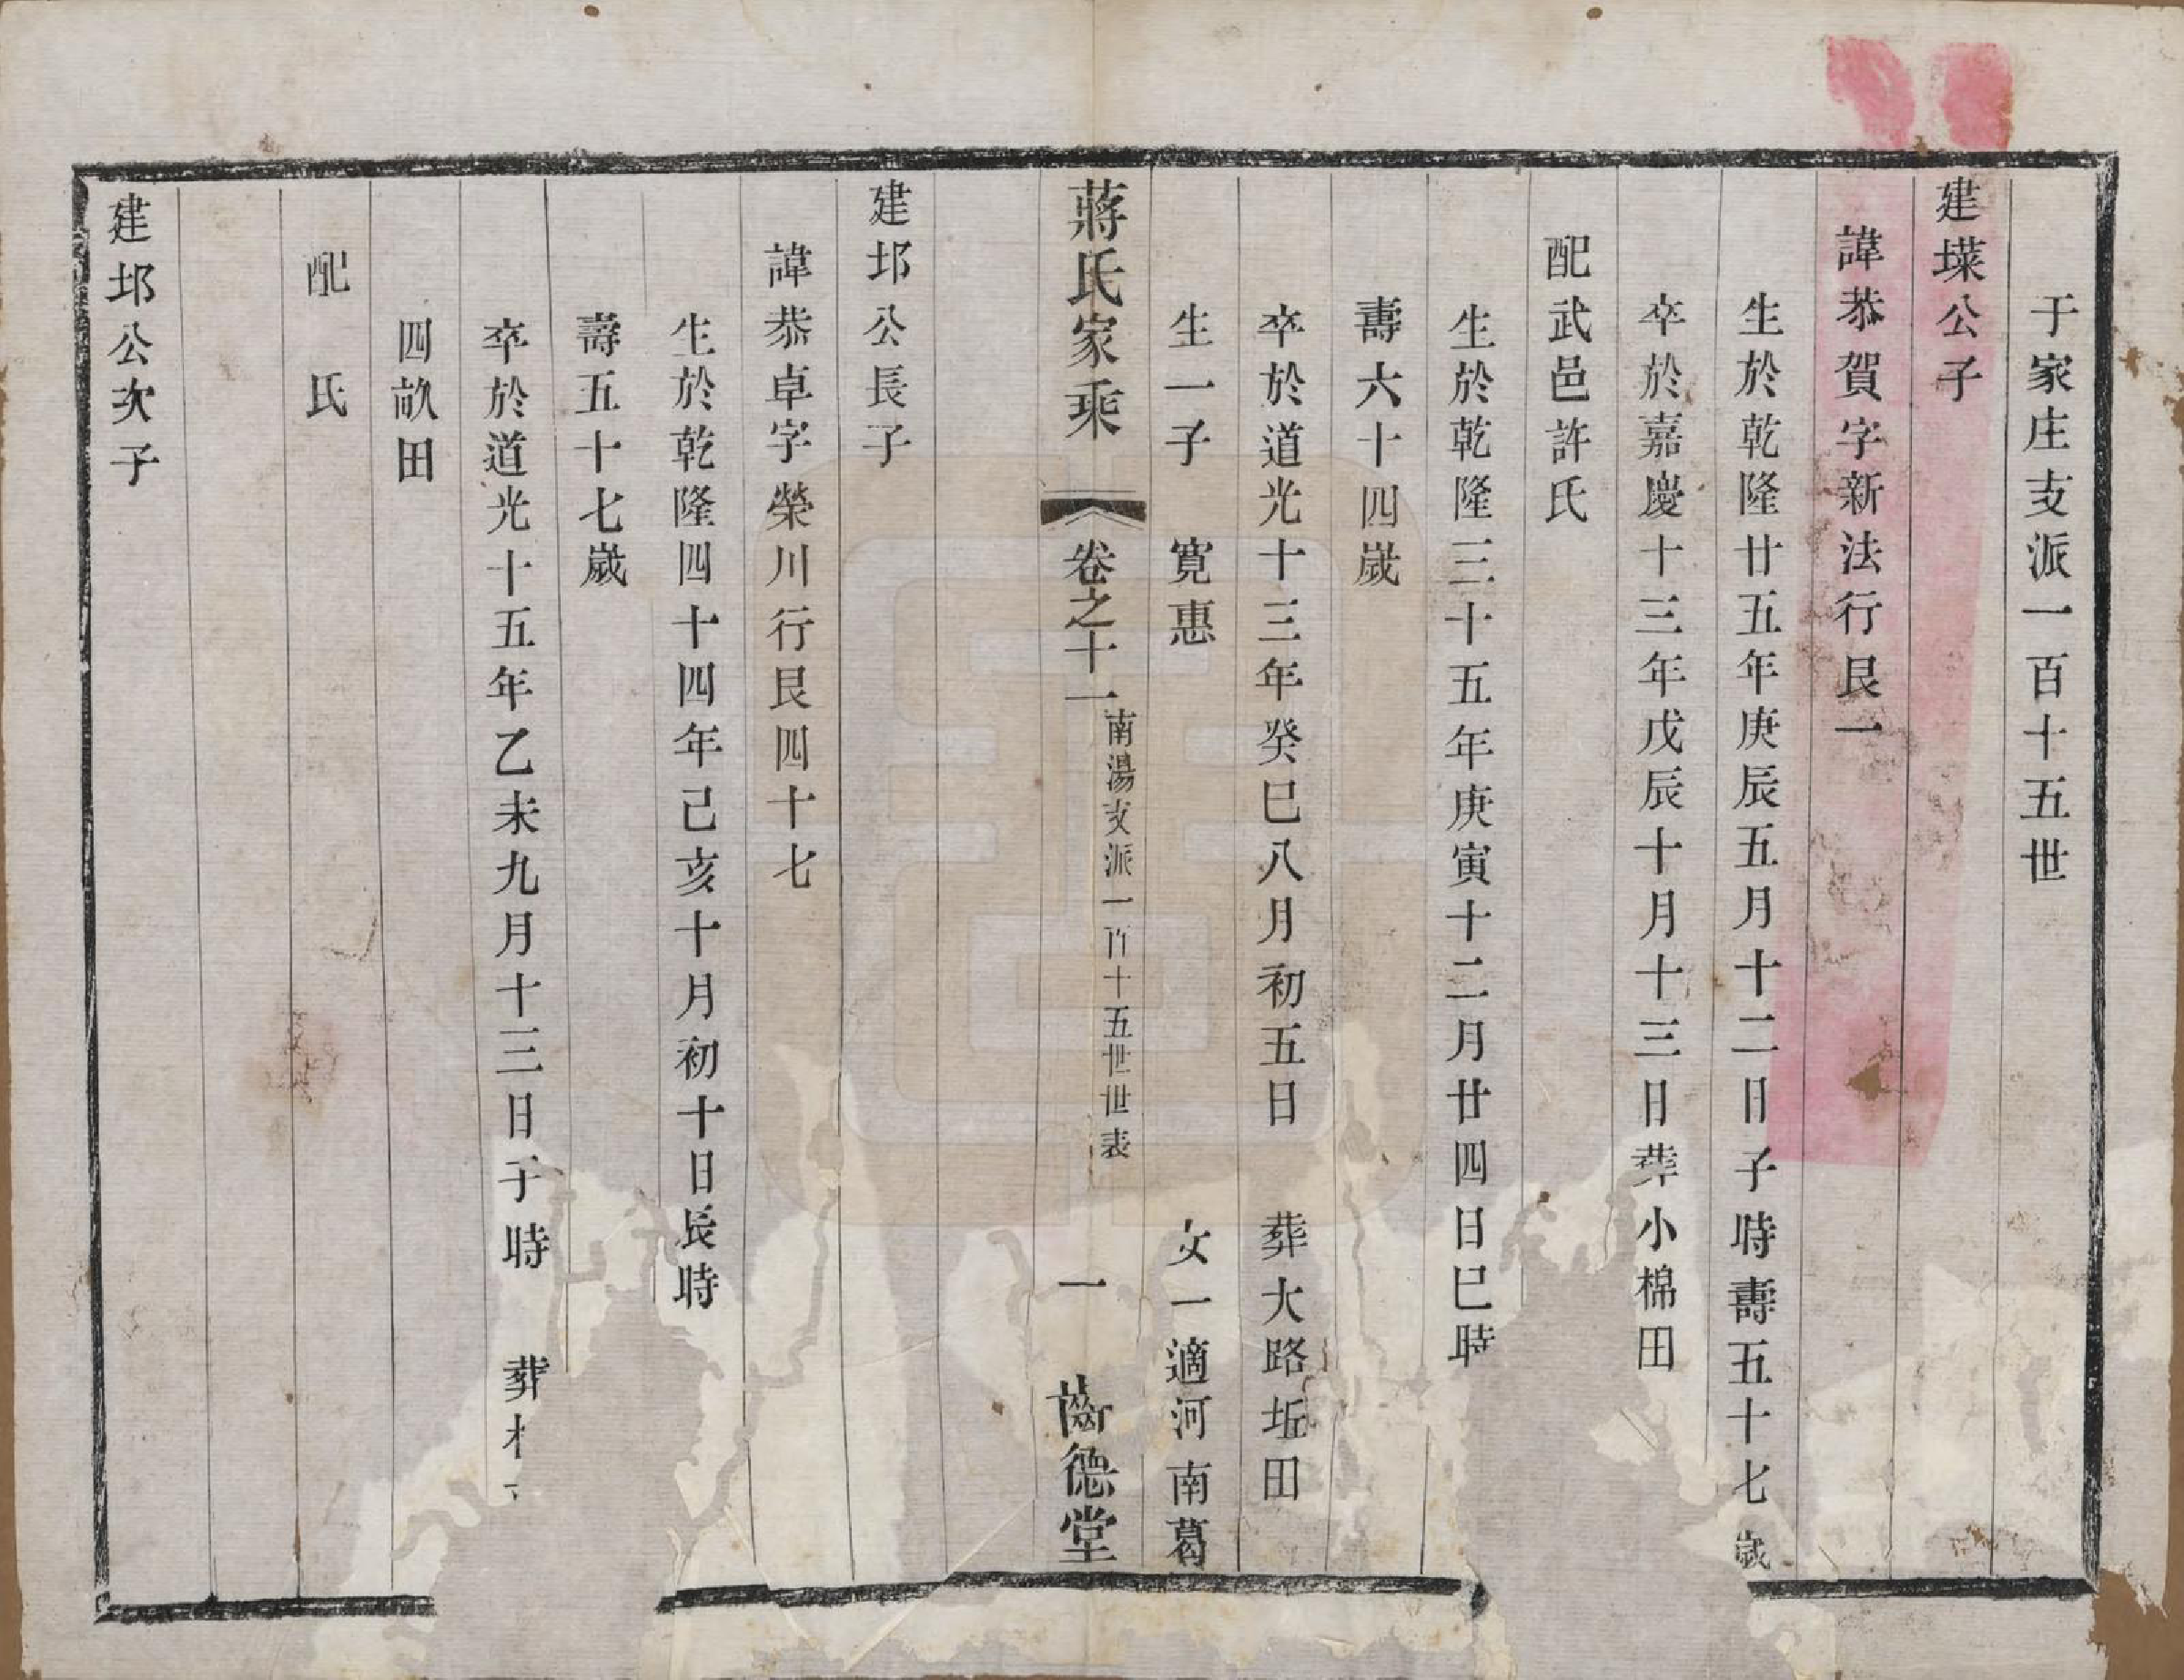 于家庄支派一百十五世
建墣公子
諱恭賀字新法行艮一
生於乾隆廿五年庚辰五月十二日子時壽五十七歲
卒於嘉慶十三年戊辰十月十三日葬小棉田
配武邑許氏
生於乾隆三十五年庚寅十二月廿四日巳時
壽六十四歲
卒於道光十三年癸巳八月初五日 葬大路坵田
生一子 寬惠 女一適河南葛
蔣氏家乘 卷之十一 南湯支派一百十五世世表 一 齒德堂
建邦公長子
諱恭卓字榮川行艮四十七
生於乾隆四十四年己亥十月初十日辰時
壽五十七歲
卒於道光十五年乙未九月十三日子時 葬
四畝田
配 氏
建邦公次子